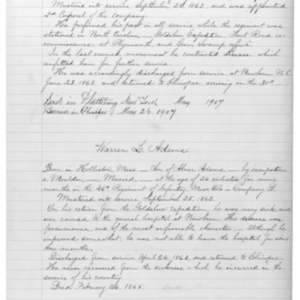 Mustered into service September 25 1862, and was appointed
2nd Corporal of the Company.
He performed his part in all service while the regiment was
stationed in North Carolina, Goldsboro Expedition
at Plymouth and Gum Swamp affair.
In the last named movement he contracted disease which
unfitted him for further service.
He was accordingly discharged from service at Newbern N.C.
June 23 1863 and returned to
May 1907
Buried in May 26 1907
Warren L. Adams
Born in Holliston Mass — Son of Adams — by occupation
a Moulder — Married — at the age of 26 enlisted for nine
months in the 46th Regiment of Infantry Mass Vols — Company
Mustered into service September 25. 1862.
On his return from the Goldsboro Expedition, he was very sick and
was carried to the general hospital at Newbern. His disease was
pneumonia, and of the most unfavorable character — although he
improved somewhat, he was not able to leave the hospital for some
months.
Discharged from service April 1863, and returned to
He never recovered from the sickness which he incurred in the
service of his country.
Died February 1865.